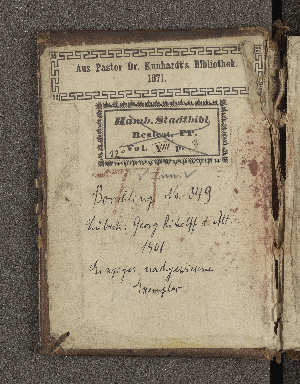 Aus Pastor Dr. Kunhardt's Bibliothek.
1871.
Hamb. Stadtbibl.
Realcat. PP.
Vol. VIII p.
Borchling No. 349
Lübeck: Georg Richolff d. Ält.
1501
Einziges nachgewiesene
Exemplar